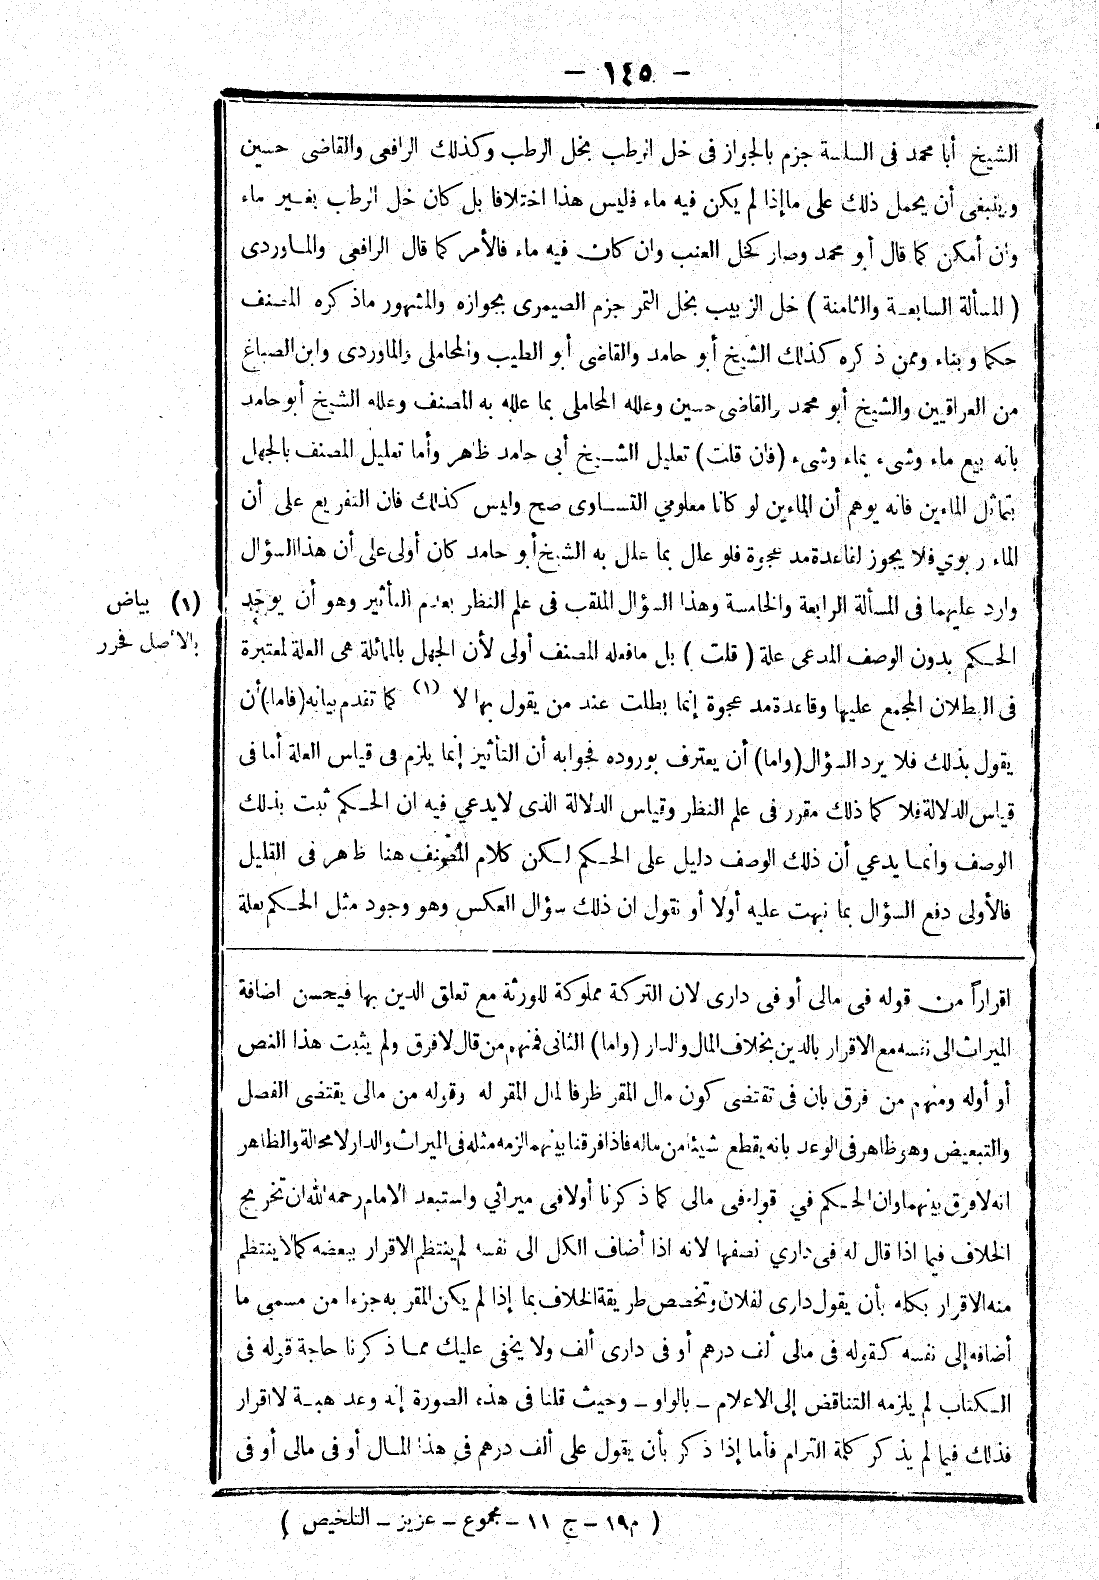 — ١٤٥ —
الشيخ أبا محمد فى السلسة جزم بالجواز فى خل الرطب بخل الرطب وكذلك الرافعى والقاضى حسين
وينبغى أن يحمل ذلك على ماإذا لم يكن فيه ماء فليس هذا اختلافا بل كان خل الرطب بغير ماء
وان أمكن كما قال أبو محمد وصار كخل العنب وان كان فيه ماء فالأمر كما قال الرافعى والماوردى
( المسألة السابعة والثامنة ) خل الزبيب بخل التمر جزم الصيمرى بجوازه والمشهور ماذكره المصنف
حكما وبناء وممن ذكره كذلك الشيخ أبو حامد والقاضى أبو الطيب والمحاملى والماوردى وابن الصباغ
من العراقيين والشيخ أبو محمد والقاضى حسين وعلله المحاملى بما علله به المصنف وعلله الشيخ أبو حامد
بانه بيع ماء وشىء بماء وشىء (فان قلت) تعليل الشيخ أبى حامد ظاهر وأما تعليل المصنف بالجهل
بتماثل الماءين فانه يوهم أن الماءين لو كانا معلومي التساوى صح وليس كذلك فان التفريع على أن
الماء ربوي فلا يجوز لقاعدة مد عجوة فلو علل بما علل به الشيخ أبو حامد كان أولى على أن هذا السؤال
وارد عليهما فى المسألة الرابعة والخامسة وهذا السؤال الملقب فى علم النظر بعدم التأثير وهو أن يوجد
الحكم بدون الوصف المدعى علة ( قلت ) بل مافعله المصنف أولى لأن الجهل بالمماثلة هى العلة المعتبرة
فى البطلان المجمع عليها وقاعدة مد عجوة إنما بطلت عند من يقول بها لا (١) كما تقدم بيانه (فاما) أن
يقول بذلك فلا يرد السؤال (واما) أن يعترف بوروده فجوابه أن التأثيز إنما يلزم فى قياس العلة أما فى
قياس الدلالة فلا كما ذلك مقرر فى علم النظر وقياس الدلالة الذى لايدعي فيه ان الحكم ثبت بذلك
الوصف وانما يدعي أن ذلك الوصف دليل على الحكم لكن كلام المصنف هنا ظاهر فى القليل
فالأولى دفع السؤال بما نبهت عليه أولا أو نقول ان ذلك سؤال العكس وهو وجود مثل الحكم بعلة
(١) بياض
بالاصل فحرر
اقراراً من قوله فى مالى أو فى دارى لان التركة مملوكة للورثة مع تعلق الدين بها فيحسن اضافة
الميراث الى نفسه مع الاقرار بالدين بخلاف المال والدار (واما) الثانى فمنهم من قال لا فرق ولم يثبت هذا النص
أو أوله ومنهم من فرق بان فى تقتضى كون مال المقر ظرفا لمال المقر له وقوله من مالى يقتضى الفصل
والتبعيض وهو ظاهر فى الوعد بانه يقطع شيئا من ماله فاذا فرقنا بينهما لزمه مثله فى الميراث والدار لا محالة والظاهر
انه لا فرق بينهما وان الحكم في قوله فى مالى كما ذكرنا أولا فى ميراثي واستبعد الامام رحمه الله ان تخريج
الخلاف فيما اذا قال له فى داري نصفها لانه اذا أضاف الكل الى نفسه لم ينتظم الاقرار ببعضه كما لا ينتظم
منه الاقرار بكله بأن يقول دارى لفلان وتخصص طريقة الخلاف بما إذا لم يكن المقر به جزءا من مسمى ما
أضافه إلى نفسه كقوله فى مالى ألف درهم أو فى دارى ألف ولا يخفى عليك مما ذكرنا حاجة قوله فى
الكتاب لم يلزمه التناقض إلى الاعلام – بالواو – وحيث قلنا فى هذه الصورة إنه وعد هبة لا اقرار
فذلك فيما لم يذكر كلمة التزام فأما إذا ذكر بأن يقول على ألف درهم في هذا المال أو فى مالى أو فى
( م١٩ – ج ١١ – مجموع – عزيز – التلخيص )